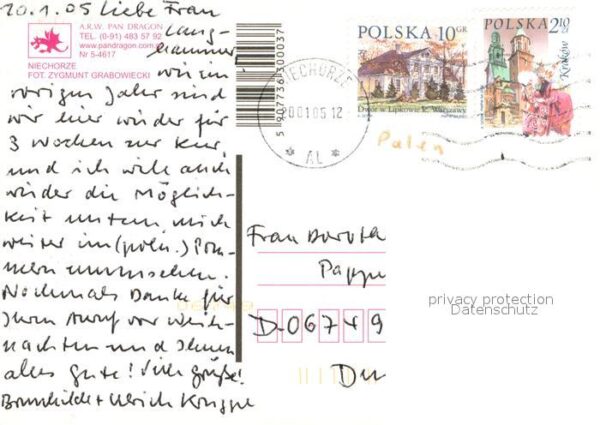 20.1.05 Liebe Frau
Lang-
hammer
wie im
vorigen Jahr sind
wir hier wieder für
3 Wochen zur Kur
und ich will auch
wieder die Möglich-
keit nutzen, mich
weiter im (poln.) Pom-
mern umzusehen.
Nochmals Danke für
Ihren Anruf vor Weih-
nachten und Ihnen
alles Gute! Viele Grüße!
Brunhilde + Ulrich
A.R.W. PAN DRAGON
TEL. (0-91) 483 57 92
www.pandragon.com.pl
Nr 5-4617
NIECHORZE
FOT. ZYGMUNT GRABOWIECKI
5 907736 300037
NIECHORZE
20 01 05 12
* AL *
POLSKA 10 GR
Dwór w Lipkowie k. Warszawy
POLSKA 2,10
Kraków
Polen
Frau
Pappe
D-06749
privacy protection
Datenschutz